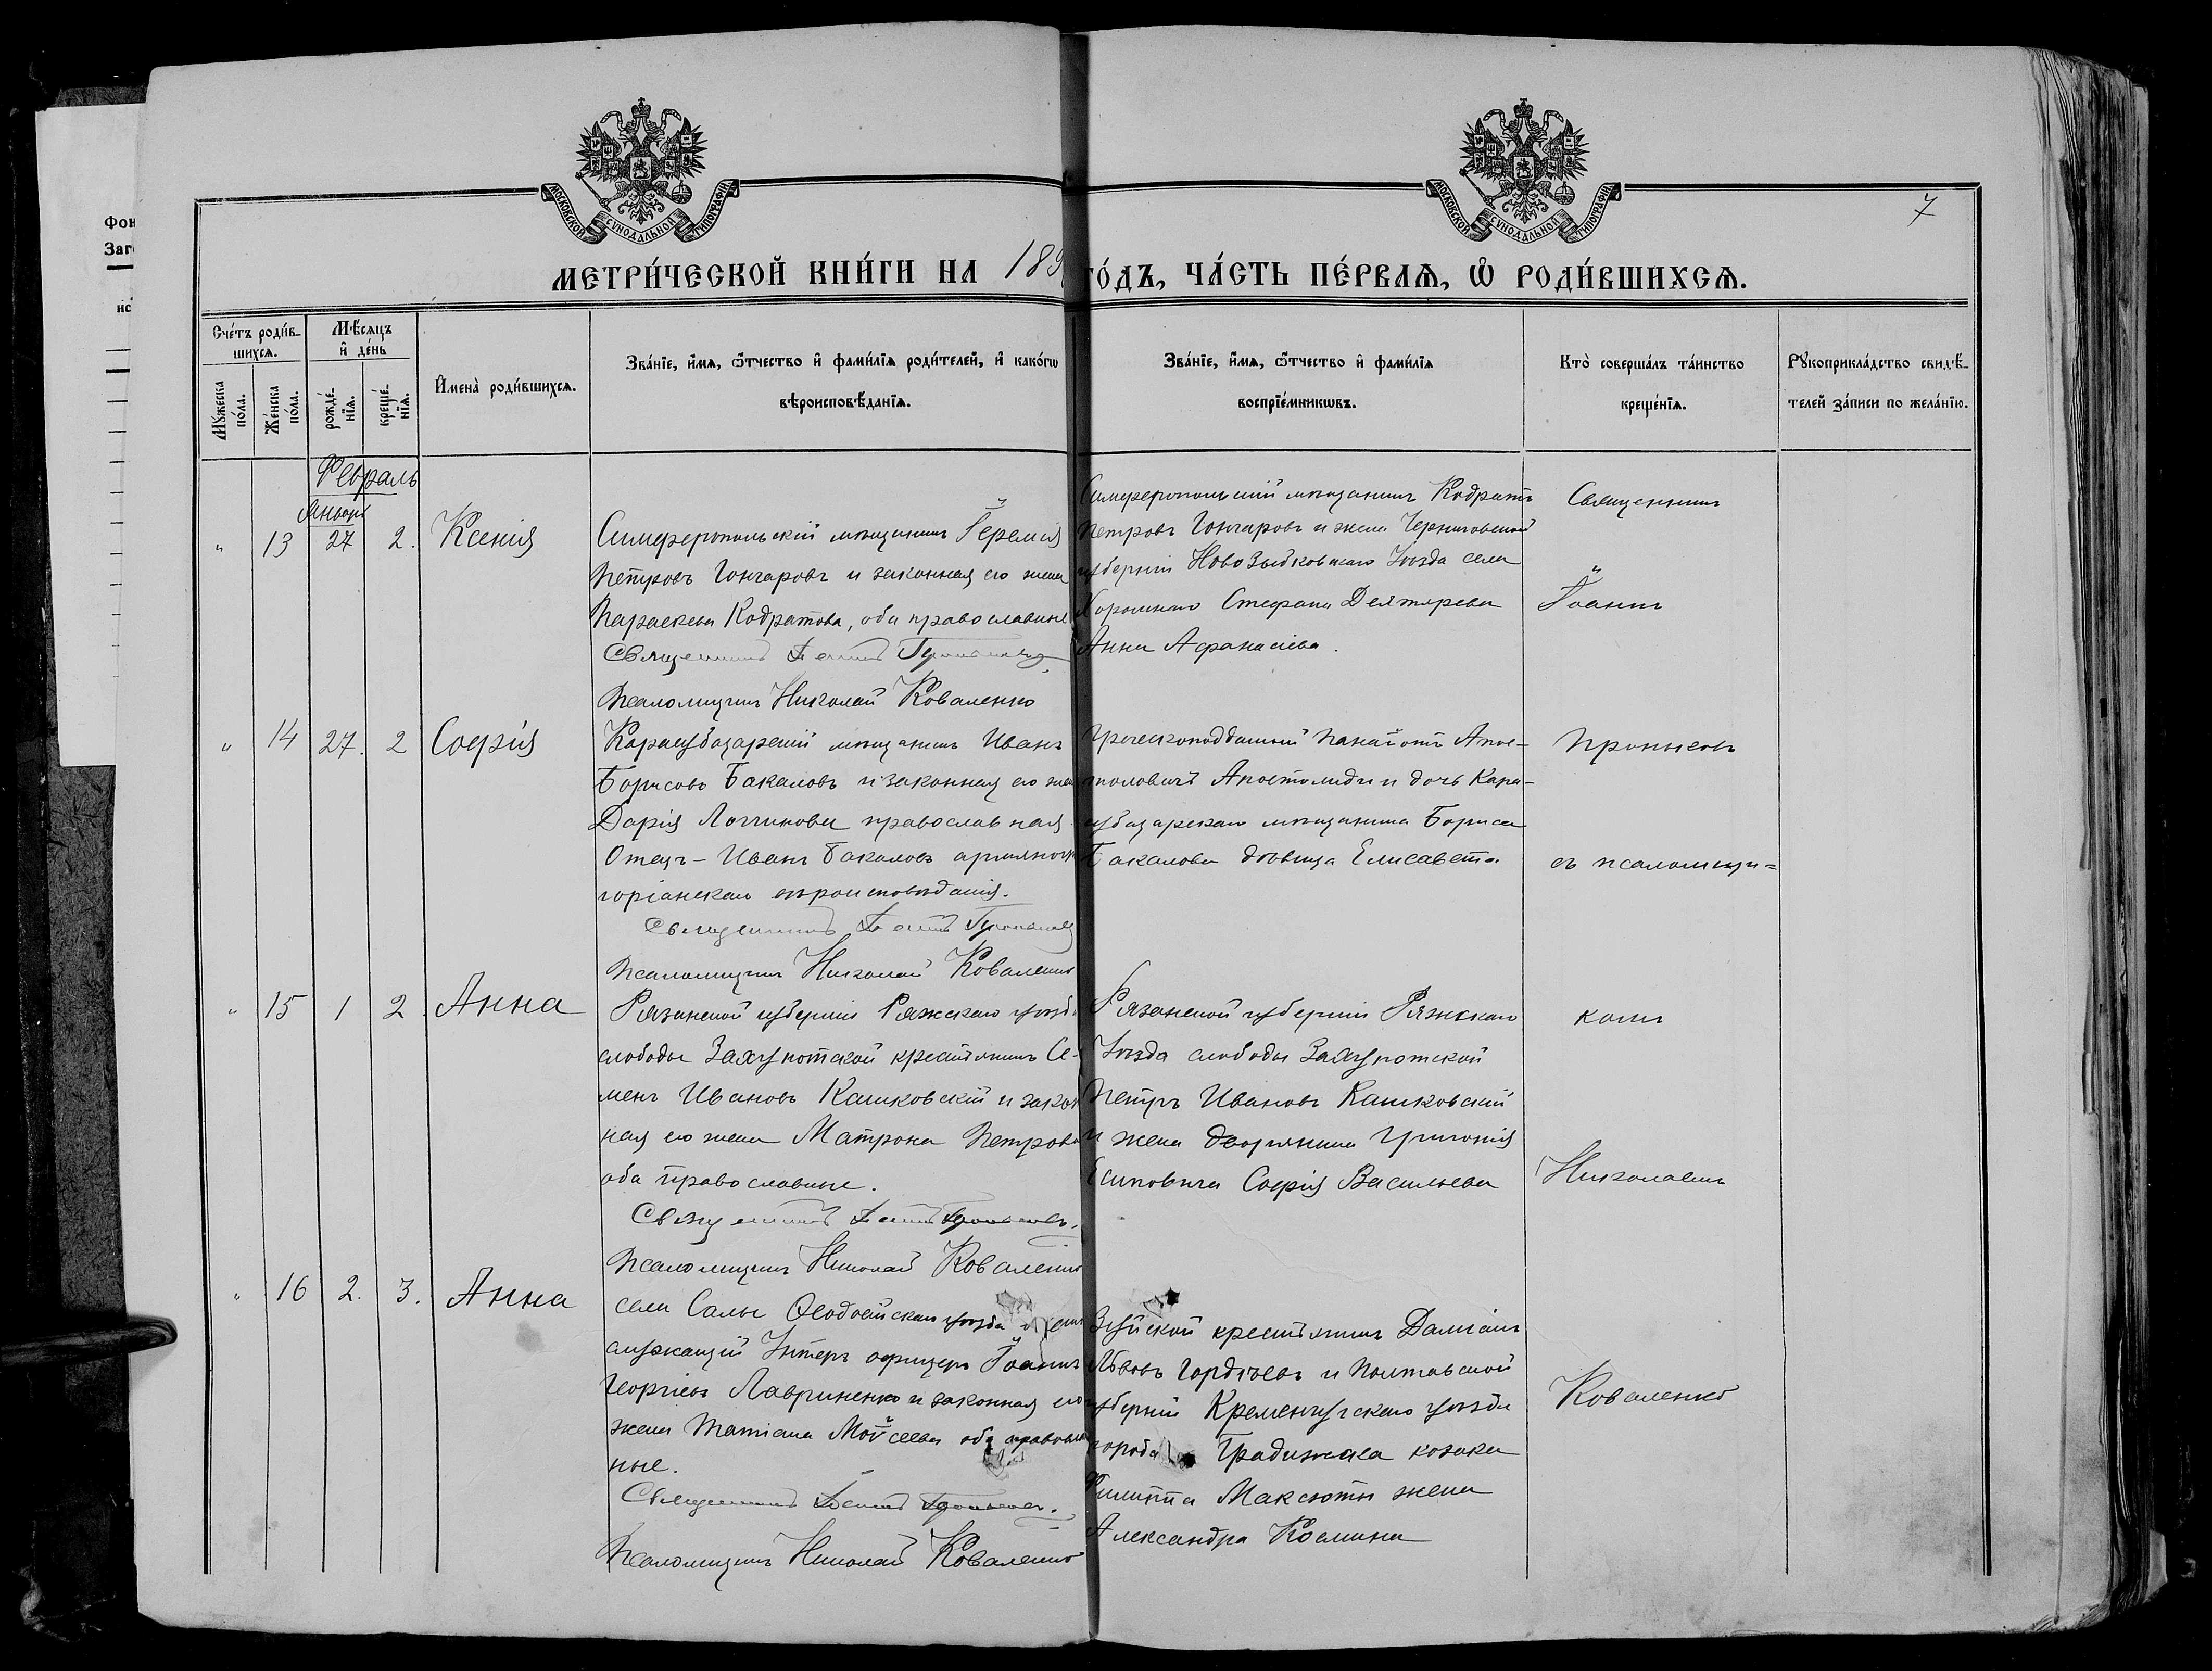 Фон
Заг
ис
МОСКОВСКОЙ СѴНОДАЛЬНОЙ ТИПОГРАФІИ
МОСКОВСКОЙ СѴНОДАЛЬНОЙ ТИПОГРАФІИ
7
МЕТРИ́ЧЕСКОЙ КНИ́ГИ НА 189 ГО́ДЪ, ЧА́СТЬ ПЕ́РВАѦ, Ѡ҆ РОДИ́ВШИХСѦ.
Сче́тъ роди́в-
шихсѧ.
Мꙋ́жеска
по́ла.
Же́нска
по́ла.
Мѣ́сѧцъ
и҆ де́нь
рожде́-
нїѧ.
креще́-
нїѧ.
И҆мена̀ роди́вшихсѧ.
Зва́нїе, и҆́мѧ, ѻ҆́тчество и҆ фами́лїѧ роди́телей, и҆ како́гѡ
вѣроисповѣ́данїѧ.
Зва́нїе, и҆́мѧ, ѻ҆́тчество и҆ фами́лїѧ
воспрїе́мникѡвъ.
Кто̀ соверша́лъ та́инство
креще́нїѧ.
Рꙋкоприкла́дство свидѣ́-
телей за́писи по жела́нїю.
Февраль
Январь
" 13 27 2. Ксенія
Симферопольскій мѣщанинъ Іеремія
Петровъ Гончаровъ и законная его жена
Параскева Кодратова, оба православные
Священникъ Іоаннъ
Псаломщикъ Николай Коваленко
Симферопольскій мѣщанинъ Кодратъ
Петровъ Гончаровъ и жена Черниговской
губерніи Новозыбковскаго Уѣзда села
Стефана Дехтярева
Анна Афанасіева.
Священникъ
Іоаннъ
" 14 27. 2 Софія
Карасубазарскій мѣщанинъ Иванъ
Борисовъ Бакаловъ и законная его жена
Дарія Логгинова православная
Отецъ - Иванъ Бакаловъ армяно-
горіанскаго вѣроисповѣданія.
Священникъ Іоаннъ
Псаломщикъ Николай Коваленко
Греческоподданный Панаіотъ Апос-
толовичъ Апостолиди и дочь Кара-
субазарскаго мѣщанина Бориса
Бакалова дѣвица Елисавета
съ псаломщи=
" 15 1 2. Анна
Рязанской губерніи Ряжскаго уѣзда
слободы Захупотской крестьянинъ Се-
менъ Ивановъ Кашковскій и закон
ная его жена Матрона Петрова
оба православные.
Священникъ Іоаннъ
Псаломщикъ Николай Коваленко
Рязанской губерніи Ряжскаго
Уѣзда слободы Захупотской
Петръ Ивановъ Кашковскій
и жена дворянина Григорія
Есиповича Софія Васильева
комъ
Николаемъ
" 16 2. 3. Анна
села Салы Ѳеодосійскаго уѣзда
служащій Унтеръ офицеръ Іоаннъ
Георгіевъ Лавриненко и законная его
жена Татіана Моѵсеева оба православ
ные.
Священникъ Іоаннъ
Псаломщикъ Николай Коваленко
Зуйской крестьянинъ Даміанъ
Львовъ Гордѣевъ и Полтавской
губерніи Кременчугскаго уѣзда
города Градижска козака
Филиппа Максюты жена
Александра Космина
Коваленко